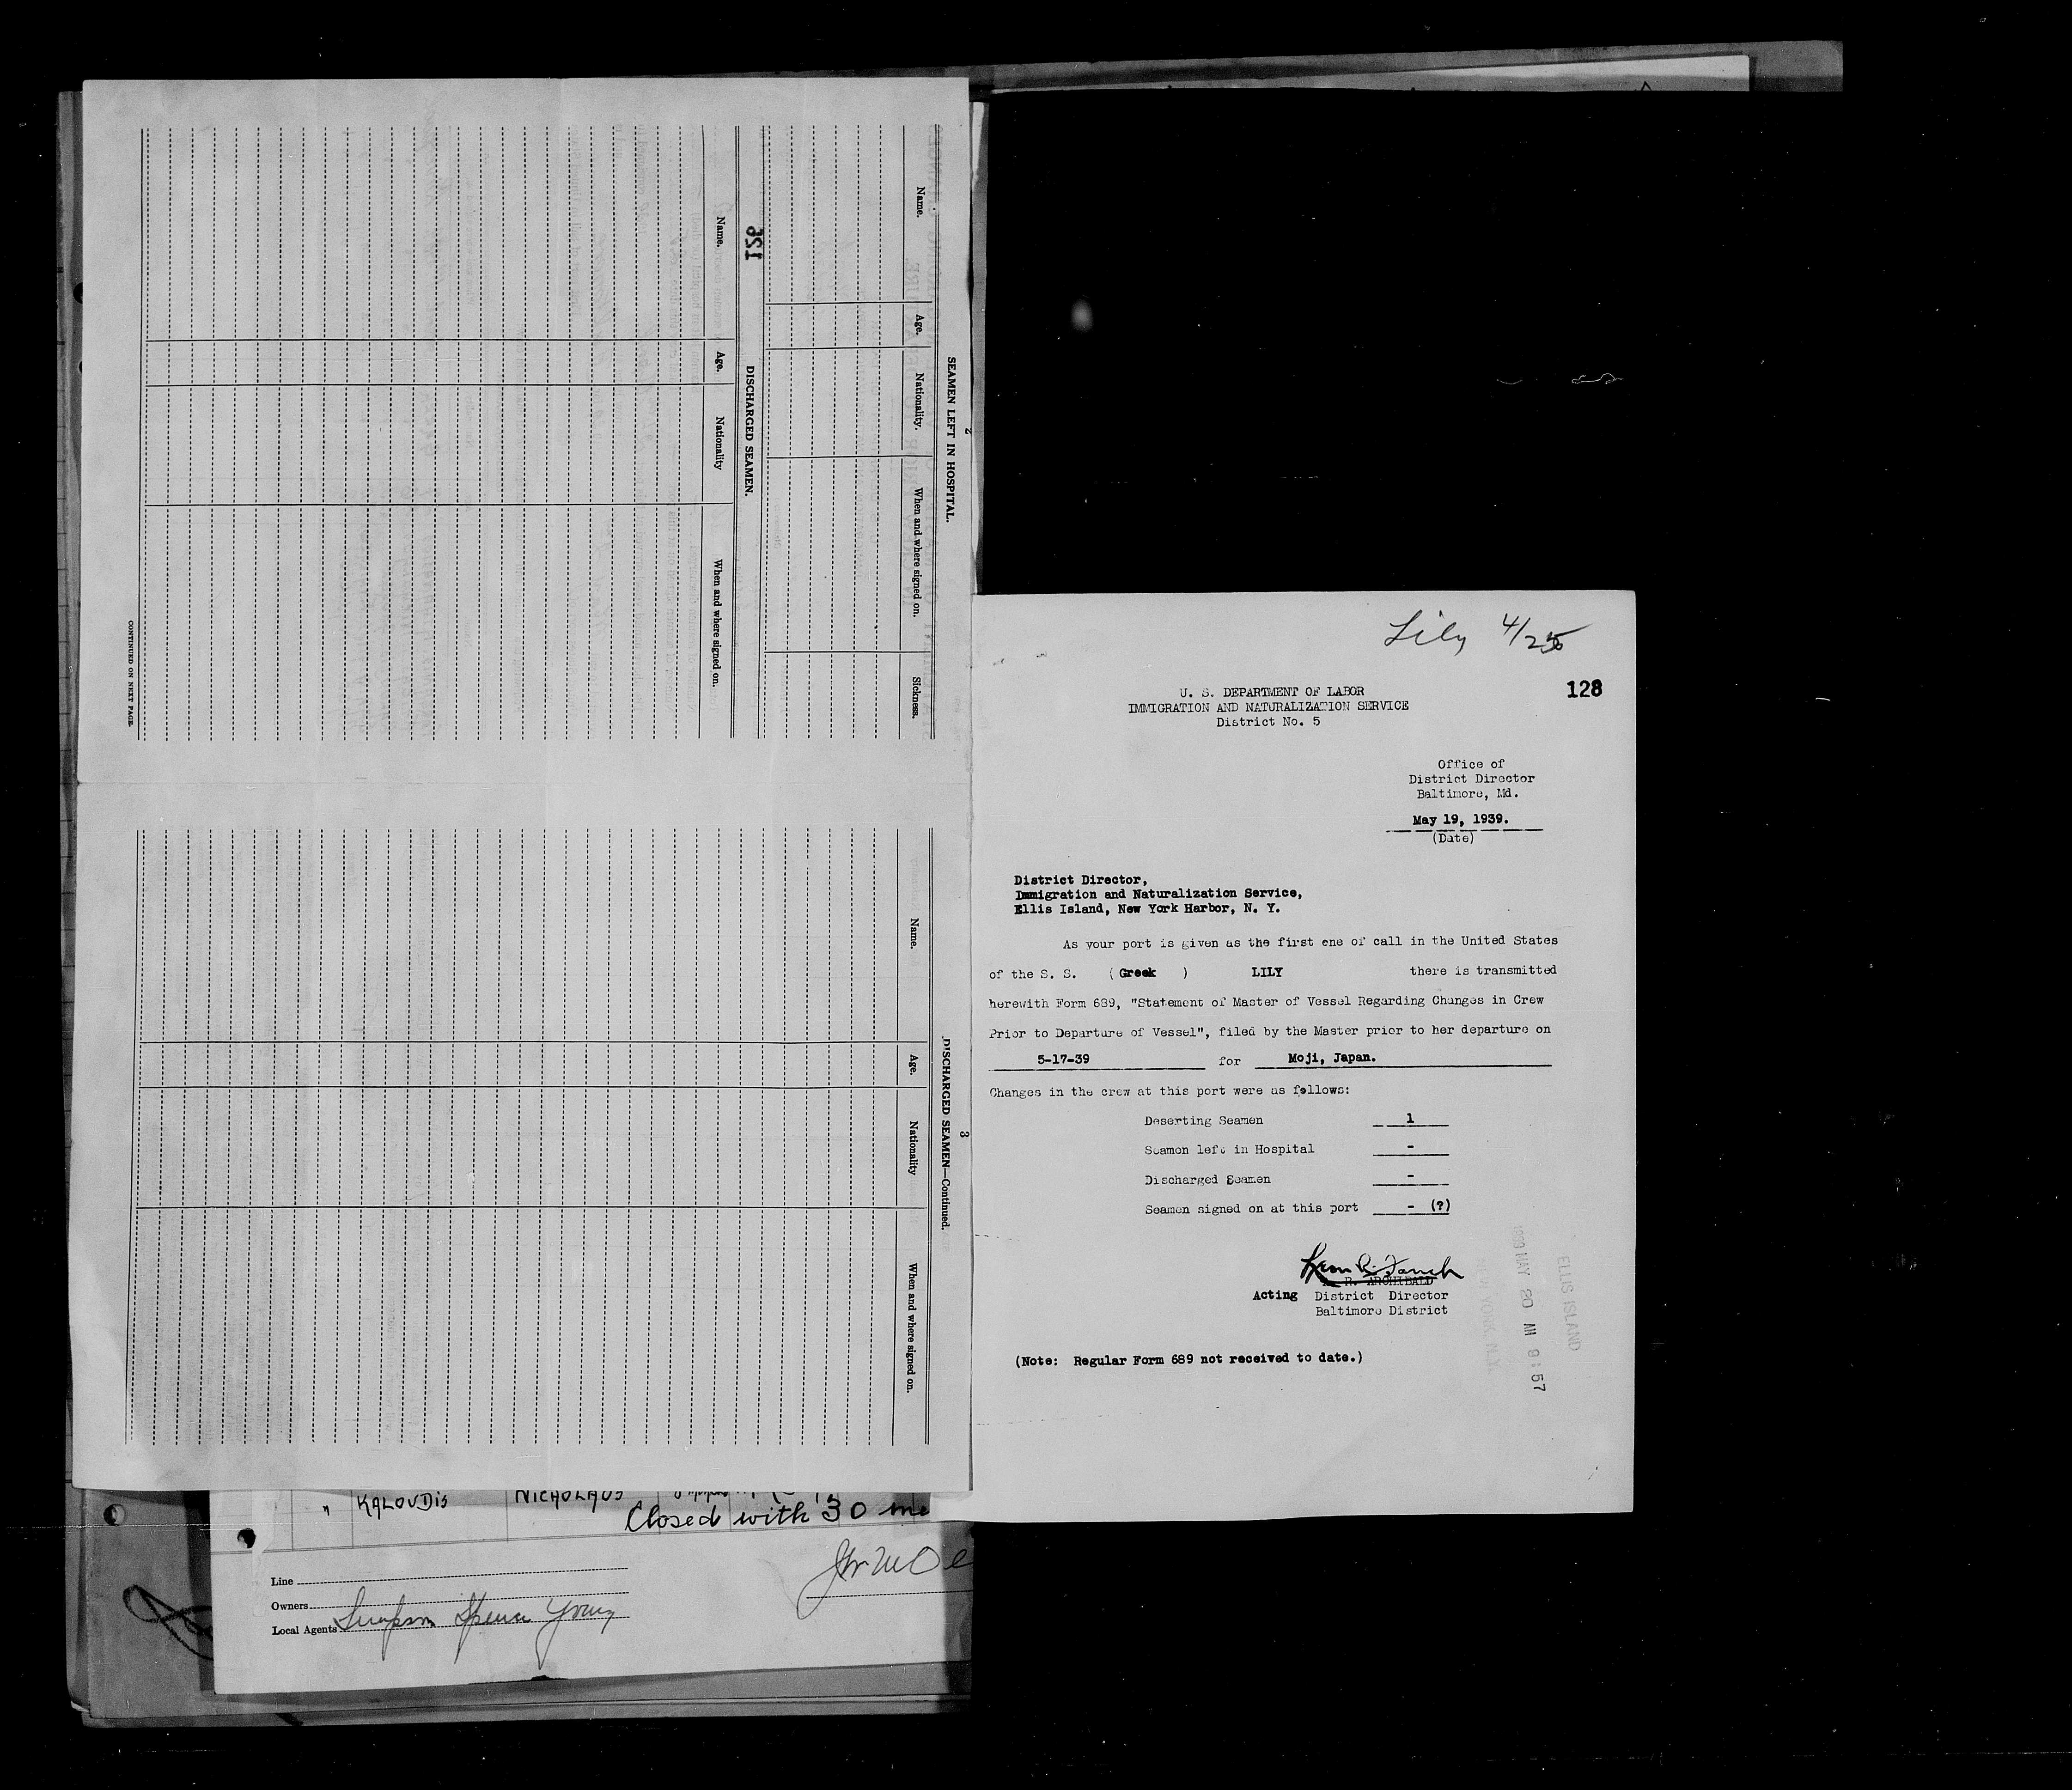 2
SEAMEN LEFT IN HOSPITAL.
Name. Age. Nationality. When and where signed on. Sickness.
126
DISCHARGED SEAMEN.
Name. Age. Nationality When and where signed on.
CONTINUED ON NEXT PAGE.
3
DISCHARGED SEAMEN—Continued.
Name. Age. Nationality When and where signed on.
" KALOUDIS NICHOLAUS
Closed with 30 me
Line
Owners
Local Agents Simpson Spence Young
Lily 4/25
128
U. S. DEPARTMENT OF LABOR
IMMIGRATION AND NATURALIZATION SERVICE
District No. 5
Office of
District Director
Baltimore, Md.
May 19, 1939.
(Date)
District Director,
Immigration and Naturalization Service,
Ellis Island, New York Harbor, N. Y.
As your port is given as the first one of call in the United States
of the S. S. (Greek ) LILY there is transmitted
herewith Form 689, "Statement of Master of Vessel Regarding Changes in Crew
Prior to Departure of Vessel", filed by the Master prior to her departure on
5-17-39 for Moji, Japan.
Changes in the crew at this port were as follows:
Deserting Seamen 1
Seamen left in Hospital -
Discharged Seamen -
Seamen signed on at this port - (?)
R. ARCHIBALD
Acting District Director
Baltimore District
(Note: Regular Form 689 not received to date.)
ELLIS ISLAND
1939 MAY 20 AM 9:57
NEW YORK N.Y.